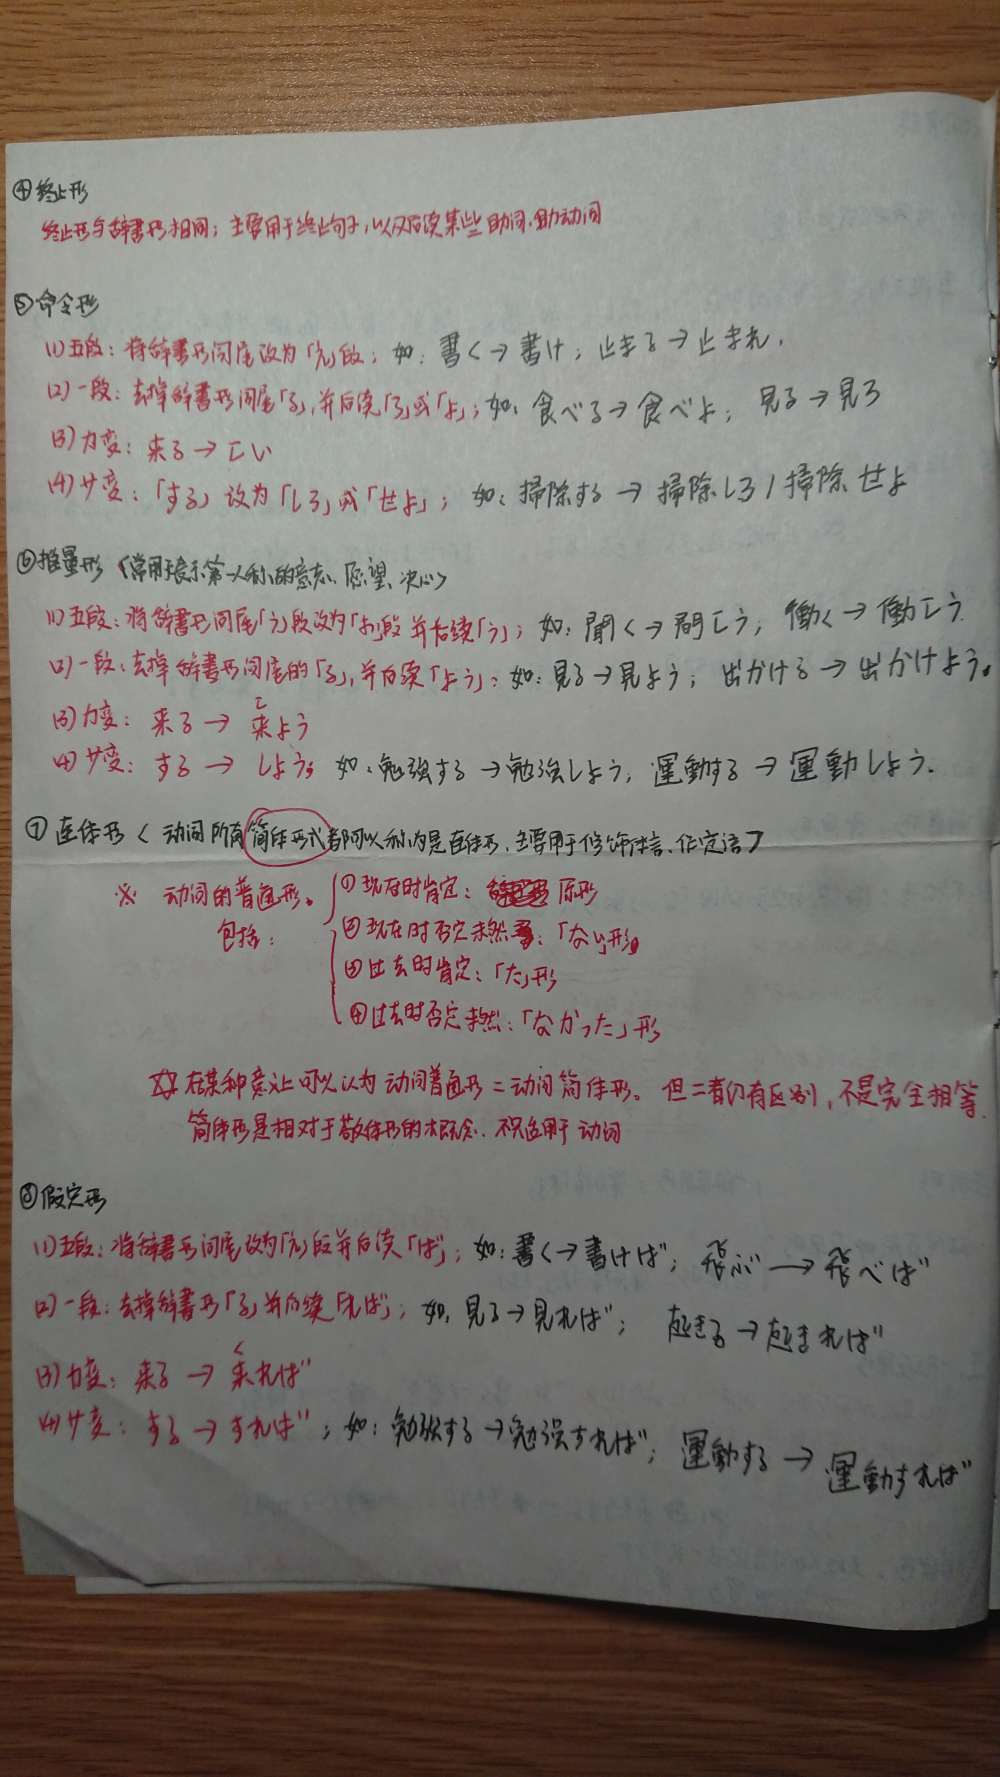 ④终止形
终止形与辞書形相同；主要用于终止句子，以及后续某些助词、助动词
⑤命令形
(1)五段：将辞書形词尾改为「え」段；如：書く→書け；止まる→止まれ.
(2)一段：去掉辞書形词尾「る」，并后续「ろ」或「よ」；如：食べる→食べよ；見る→見ろ
(3)カ变：来る→こい
(4)サ变：「する」改为「しろ」或「せよ」；如：掃除する→掃除しろ/掃除せよ
⑥推量形〈常用于表示第一人称的意志、愿望、决心〉
(1)五段：将辞書形词尾「う」段改为「お」段并后续「う」；如：聞く→聞こう；働く→働こう
(2)一段：去掉辞書形词尾的「る」，并后续「よう」：如：見る→見よう；出かける→出かけよう。
(3)カ变：来る→来よう
こ
(4)サ变：する→しよう；如：勉強する→勉強しよう，運動する→運動しよう.
⑦连体形〈动词所有简体形式都可以称为是连体形，主要用于修饰体言、作定语〉
※ 动词的普通形。
包括：
①现在时肯定：原形
②现在时否定未然：「ない」形
③过去时肯定：「た」形
④过去时否定未然：「なかった」形
☆在某种意义上可以认为动词普通形＝动词简体形。但二者仍有区别，不是完全相等.
简体形是相对于敬体形的概念，不只适用于动词
⑧假定形
(1)五段：将辞書形词尾改为「え」段并后续「ば」；如：書く→書けば；飛ぶ→飛べば
(2)一段：去掉辞書形「る」并后续「れば」；如，見る→見れば；起きる→起きれば
(3)カ变：来る→来れば
く
(4)サ变：する→すれば；如：勉強する→勉強すれば；運動する→運動すれば